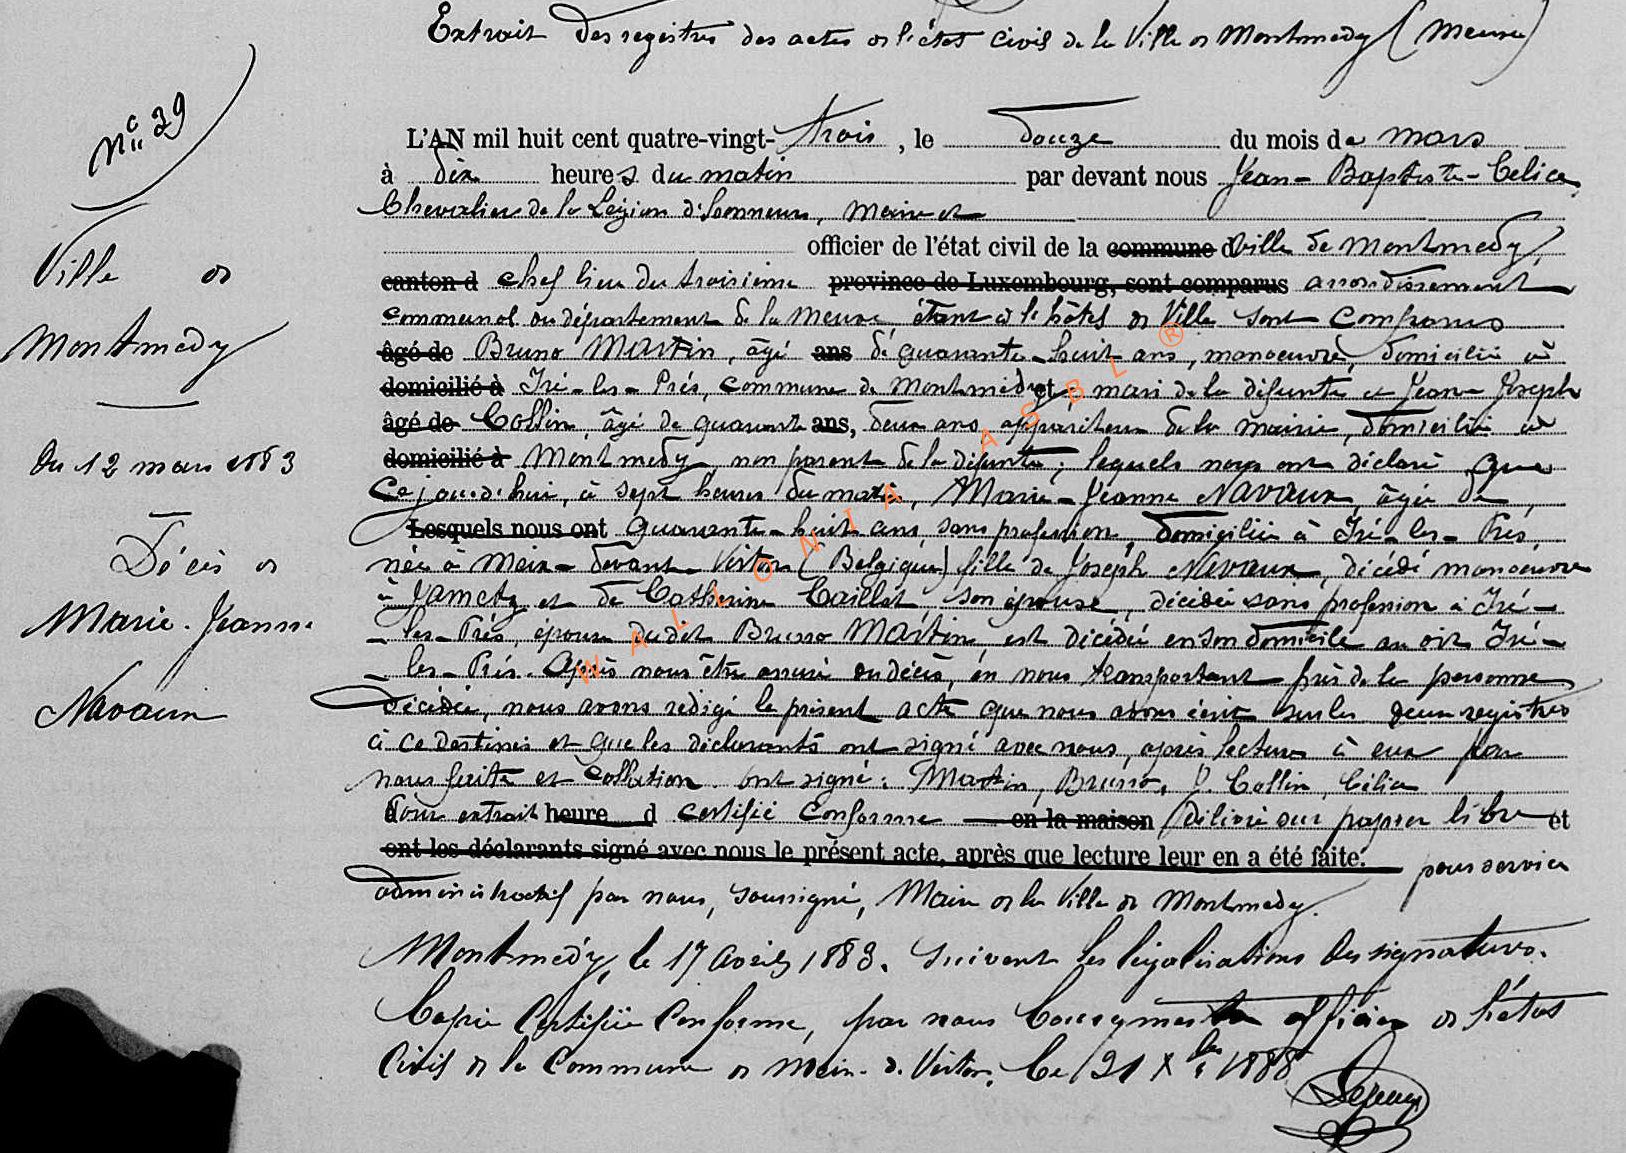 Extrait des registres des actes de l'état civil de la Ville de Montmédy (Meuse)
N° 39
L'AN mil huit cent quatre-vingt-trois, le douze du mois de mars
à dix heures du matin par devant nous Jean-Baptiste-Célice,
Chevalier de la Légion d'honneur, Maire et
officier de l'état civil de la commune d ville de Montmédy,
Ville de
canton d chef lieu du troisième province de Luxembourg, sont comparus arrondissement
communal du département de la Meuse, étant à l'hôtel de Ville sont comparus
Montmédy
âgé de Bruno Martin, âgé ans de quarante-huit ans, manoeuvre, domicilié à
domicilié à Iré-les-Prés, commune de Montmédy et, mari de la défunte et Jean-Joseph
âgé de Collin, âgé de quarante ans, deux ans appariteur de la mairie, domicilié à
du 12 mars 1883
domicilié à Montmédy, non parent de la défunte; lesquels nous ont déclaré que
cejourd'hui, à sept heures du matin, Marie-Jeanne Navaux, âgée de
Lesquels nous ont quarante-huit ans, sans profession, domiciliée à Iré-les-Prés,
Décès de
née à Meix-devant-Virton (Belgique) fille de Joseph Navaux, décédé manoeuvre
à Jametz et de Catherine Caillet, son épouse, décédée sans profession à Iré-
Marie-Jeanne
-les-Prés, épouse dudit Bruno Martin, est décédée en son domicile au dit Iré-
-les-Prés. Après nous être assuré du décès, en nous transportant près de la personne
Navaux
décédée, nous avons rédigé le présent acte que nous avons écrit sur les deux registres
à ce destinés et que les déclarants ont signé avec nous, après lecture à eux par
nous faite et collation. ont signé: Martin, Bruno, J. Collin, Célice
Pour extrait heure d certifié conforme en la maison délivré sur papier libre et
ont les déclarants signé avec nous le présent acte, après que lecture leur en a été faite. pour service
administratif par nous, soussigné, Maire de la Ville de Montmédy.
Montmédy, le 17 avril 1883. Suivent les légalisations des signatures.
Copie certifiée conforme, par nous Bourgmestre officier de l'état
Civil de la Commune de Meix-d-Virton, le 21 Xbre 1888
WALLONIA ASBL ®